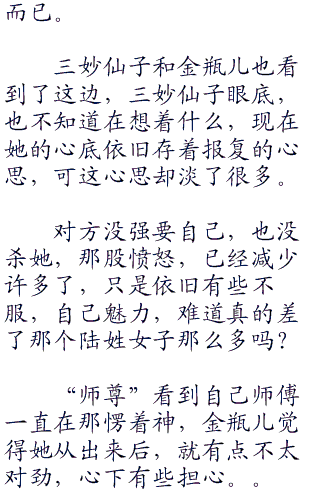 而已。
三妙仙子和金瓶儿也看
到了这边，三妙仙子眼底，
也不知道在想着什么，现在
她的心底依旧存着报复的心
思，可这心思却淡了很多。
对方没强要自己，也没
杀她，那股愤怒，已经减少
许多了，只是依旧有些不
服，自己魅力，难道真的差
了那个陆姓女子那么多吗？
“师尊”看到自己师傅
一直在那愣着神，金瓶儿觉
得她从出来后，就有点不太
对劲，心下有些担心。。